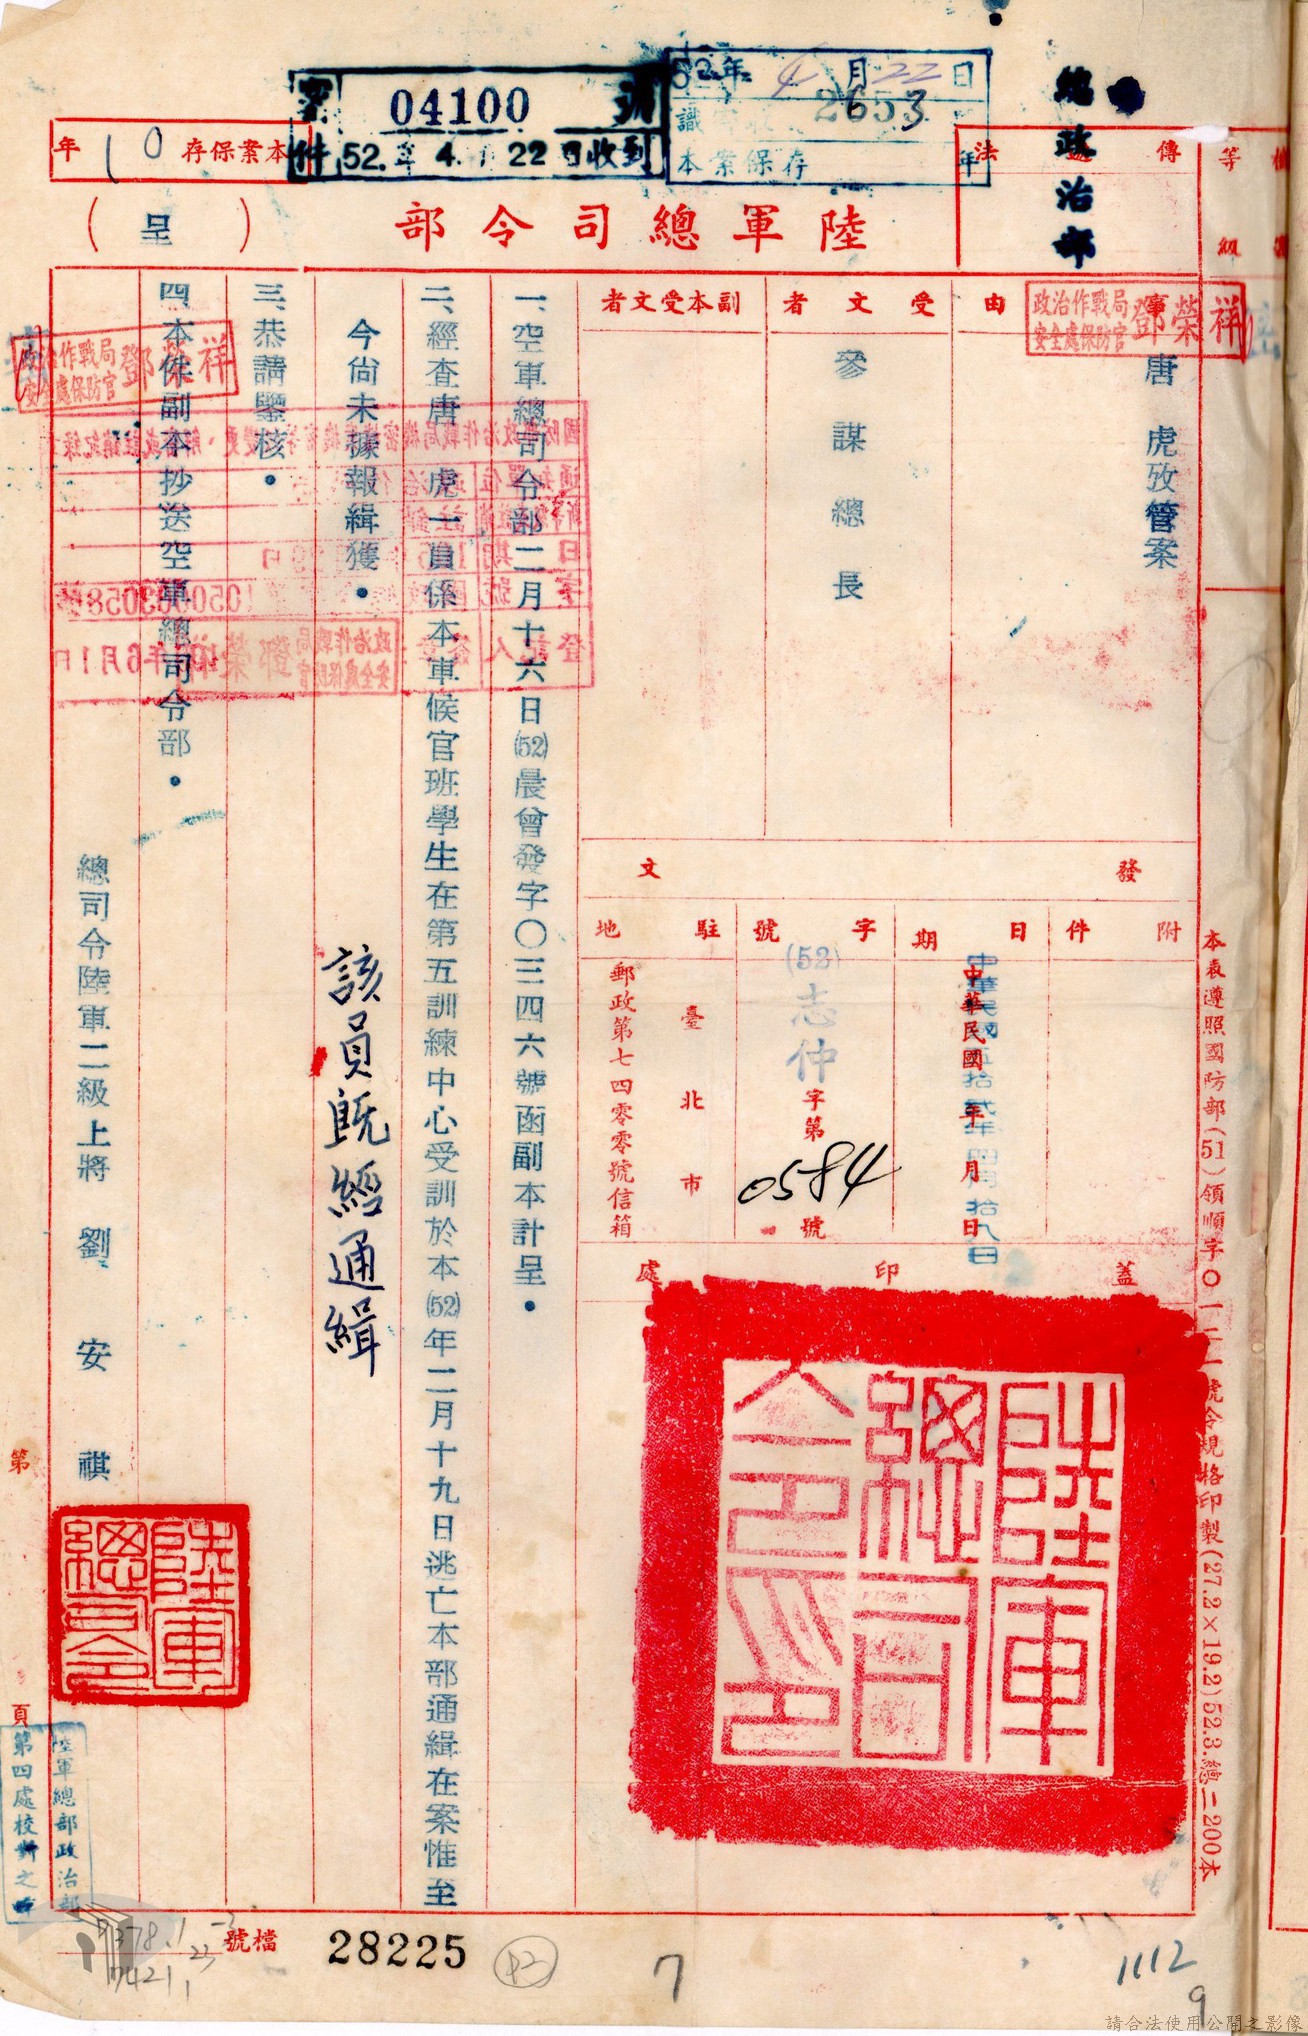 04100 號
密件 52.年 4.月 22日收到
52年4月22日
2653
本案保存 年
總政治部
本案保存 10 年
傳遞法
等級
陸軍總司令部
(呈)
事由
唐虎攷管案
受文者
參謀總長
副本受文者
政治作戰局
安全處保防官
鄧榮祥
發文
附件
日期
中華民國 年 月 日
中華民國伍拾貳年四月拾九日
字號
(52)志仲字第0584號
駐地
臺北市
郵政第七四零零號信箱
蓋印處
陸軍總司令印
一、空軍總司令部二月十六日(52)晨曾發字〇三四六號函副本計呈。
二、經查唐虎一員係本軍候官班學生在第五訓練中心受訓於本(52)年二月十九日逃亡本部通緝在案惟至
今尚未據報緝獲。
該員既經通緝
三、恭請鑒核。
四、本件副本抄送空軍總司令部。
政治作戰局
安全處保防官
鄧榮祥
總司令陸軍二級上將 劉安祺
陸軍總司令
本表遵照國防部(51)領順字〇一二一號令規格印製(27.2×19.2)52.3.總二-200本
第 頁
陸軍總部政治部
第四處校對之章
檔號
28225
7
1112
9
請合法使用公開之影像